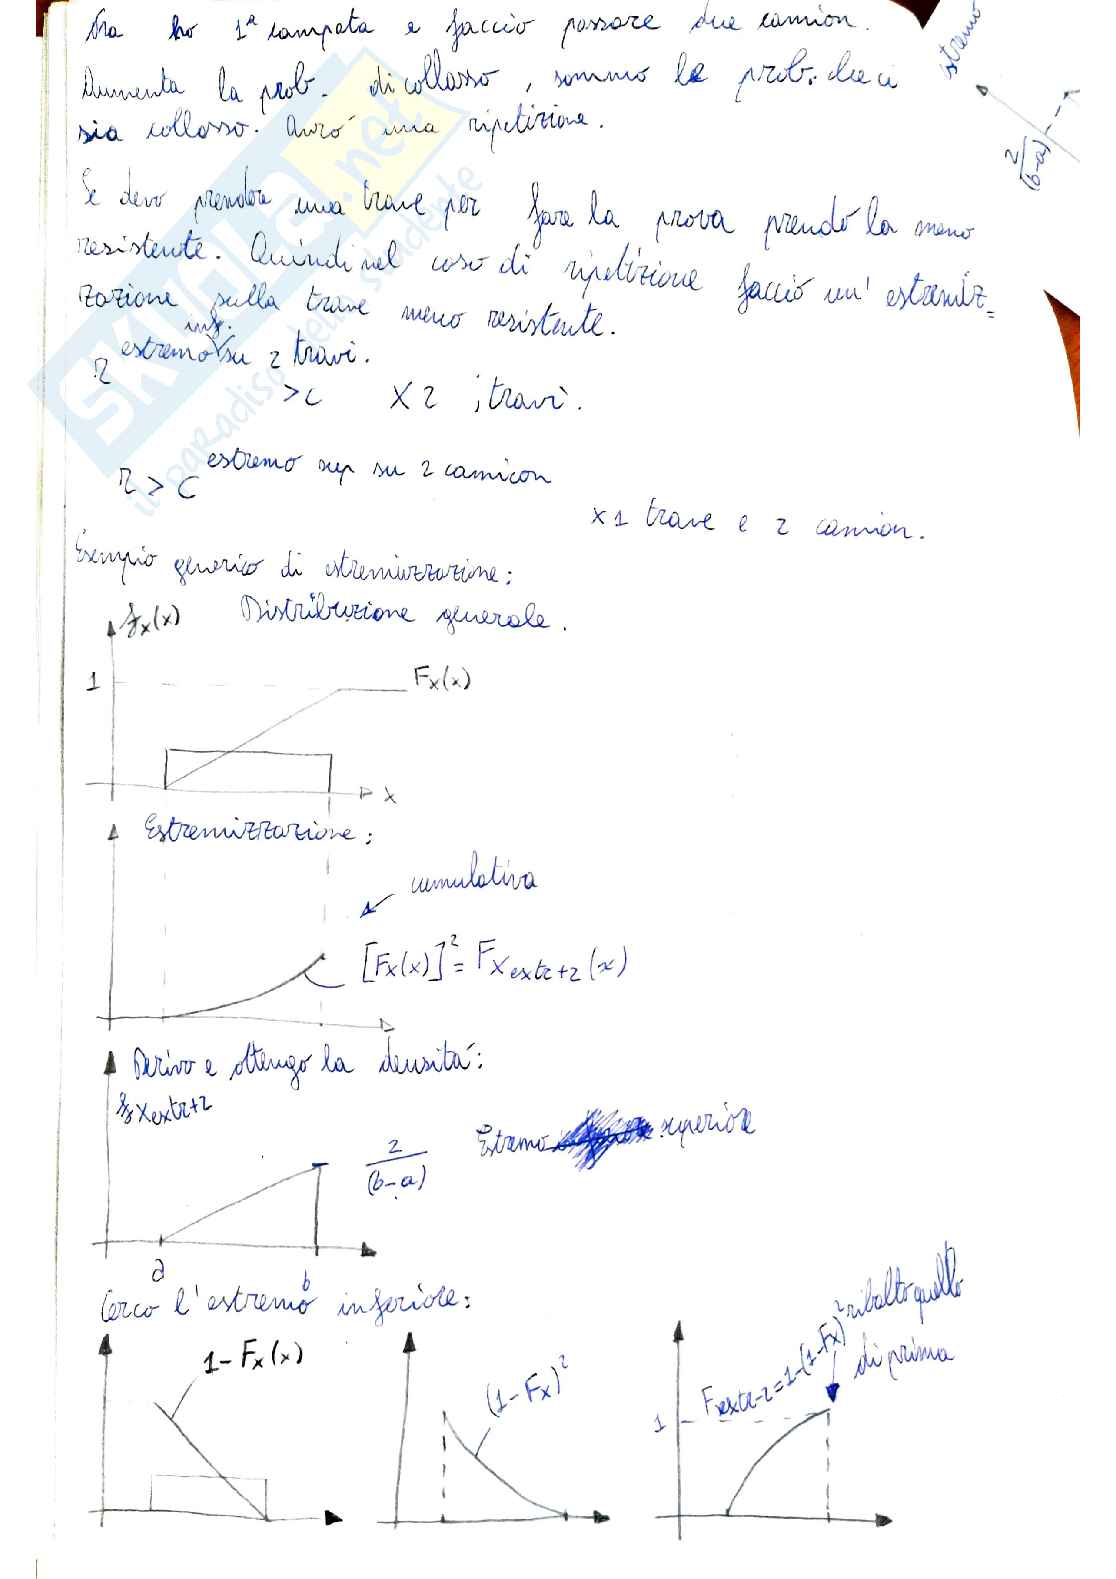 Ora ho 1ª campata e faccio passare due camion.
Aumenta la prob. di collasso, sommo le prob. che ci
sia collasso. Avrò una ripetizione.
estremo
2/(b-a)
Se devo prendere una trave per fare la prova prendo la meno
resistente. Quindi nel caso di ripetizione faccio un' estremiz=
zazione sulla trave meno resistente.
r estremo inf. su 2 travi.
>c x 2 travi.
r > c estremo sup su 2 camion
x 1 trave e 2 camion.
Esempio generico di estremizzazione:
fx(x) Distribuzione generale.
1 Fx(x)
x
Estremizzazione:
cumulativa
[Fx(x)]² = Fx extr+2 (x)
Derivo e ottengo la densità:
fx extr+2
2/(b-a) Estremo superiore
a b
Cerco l'estremo inferiore:
1-Fx(x)
(1-Fx)²
Fx extr-2 = 1-(1-Fx)² ribalto quello
di prima
1
SKUOLA.net
il paradiso dello studente